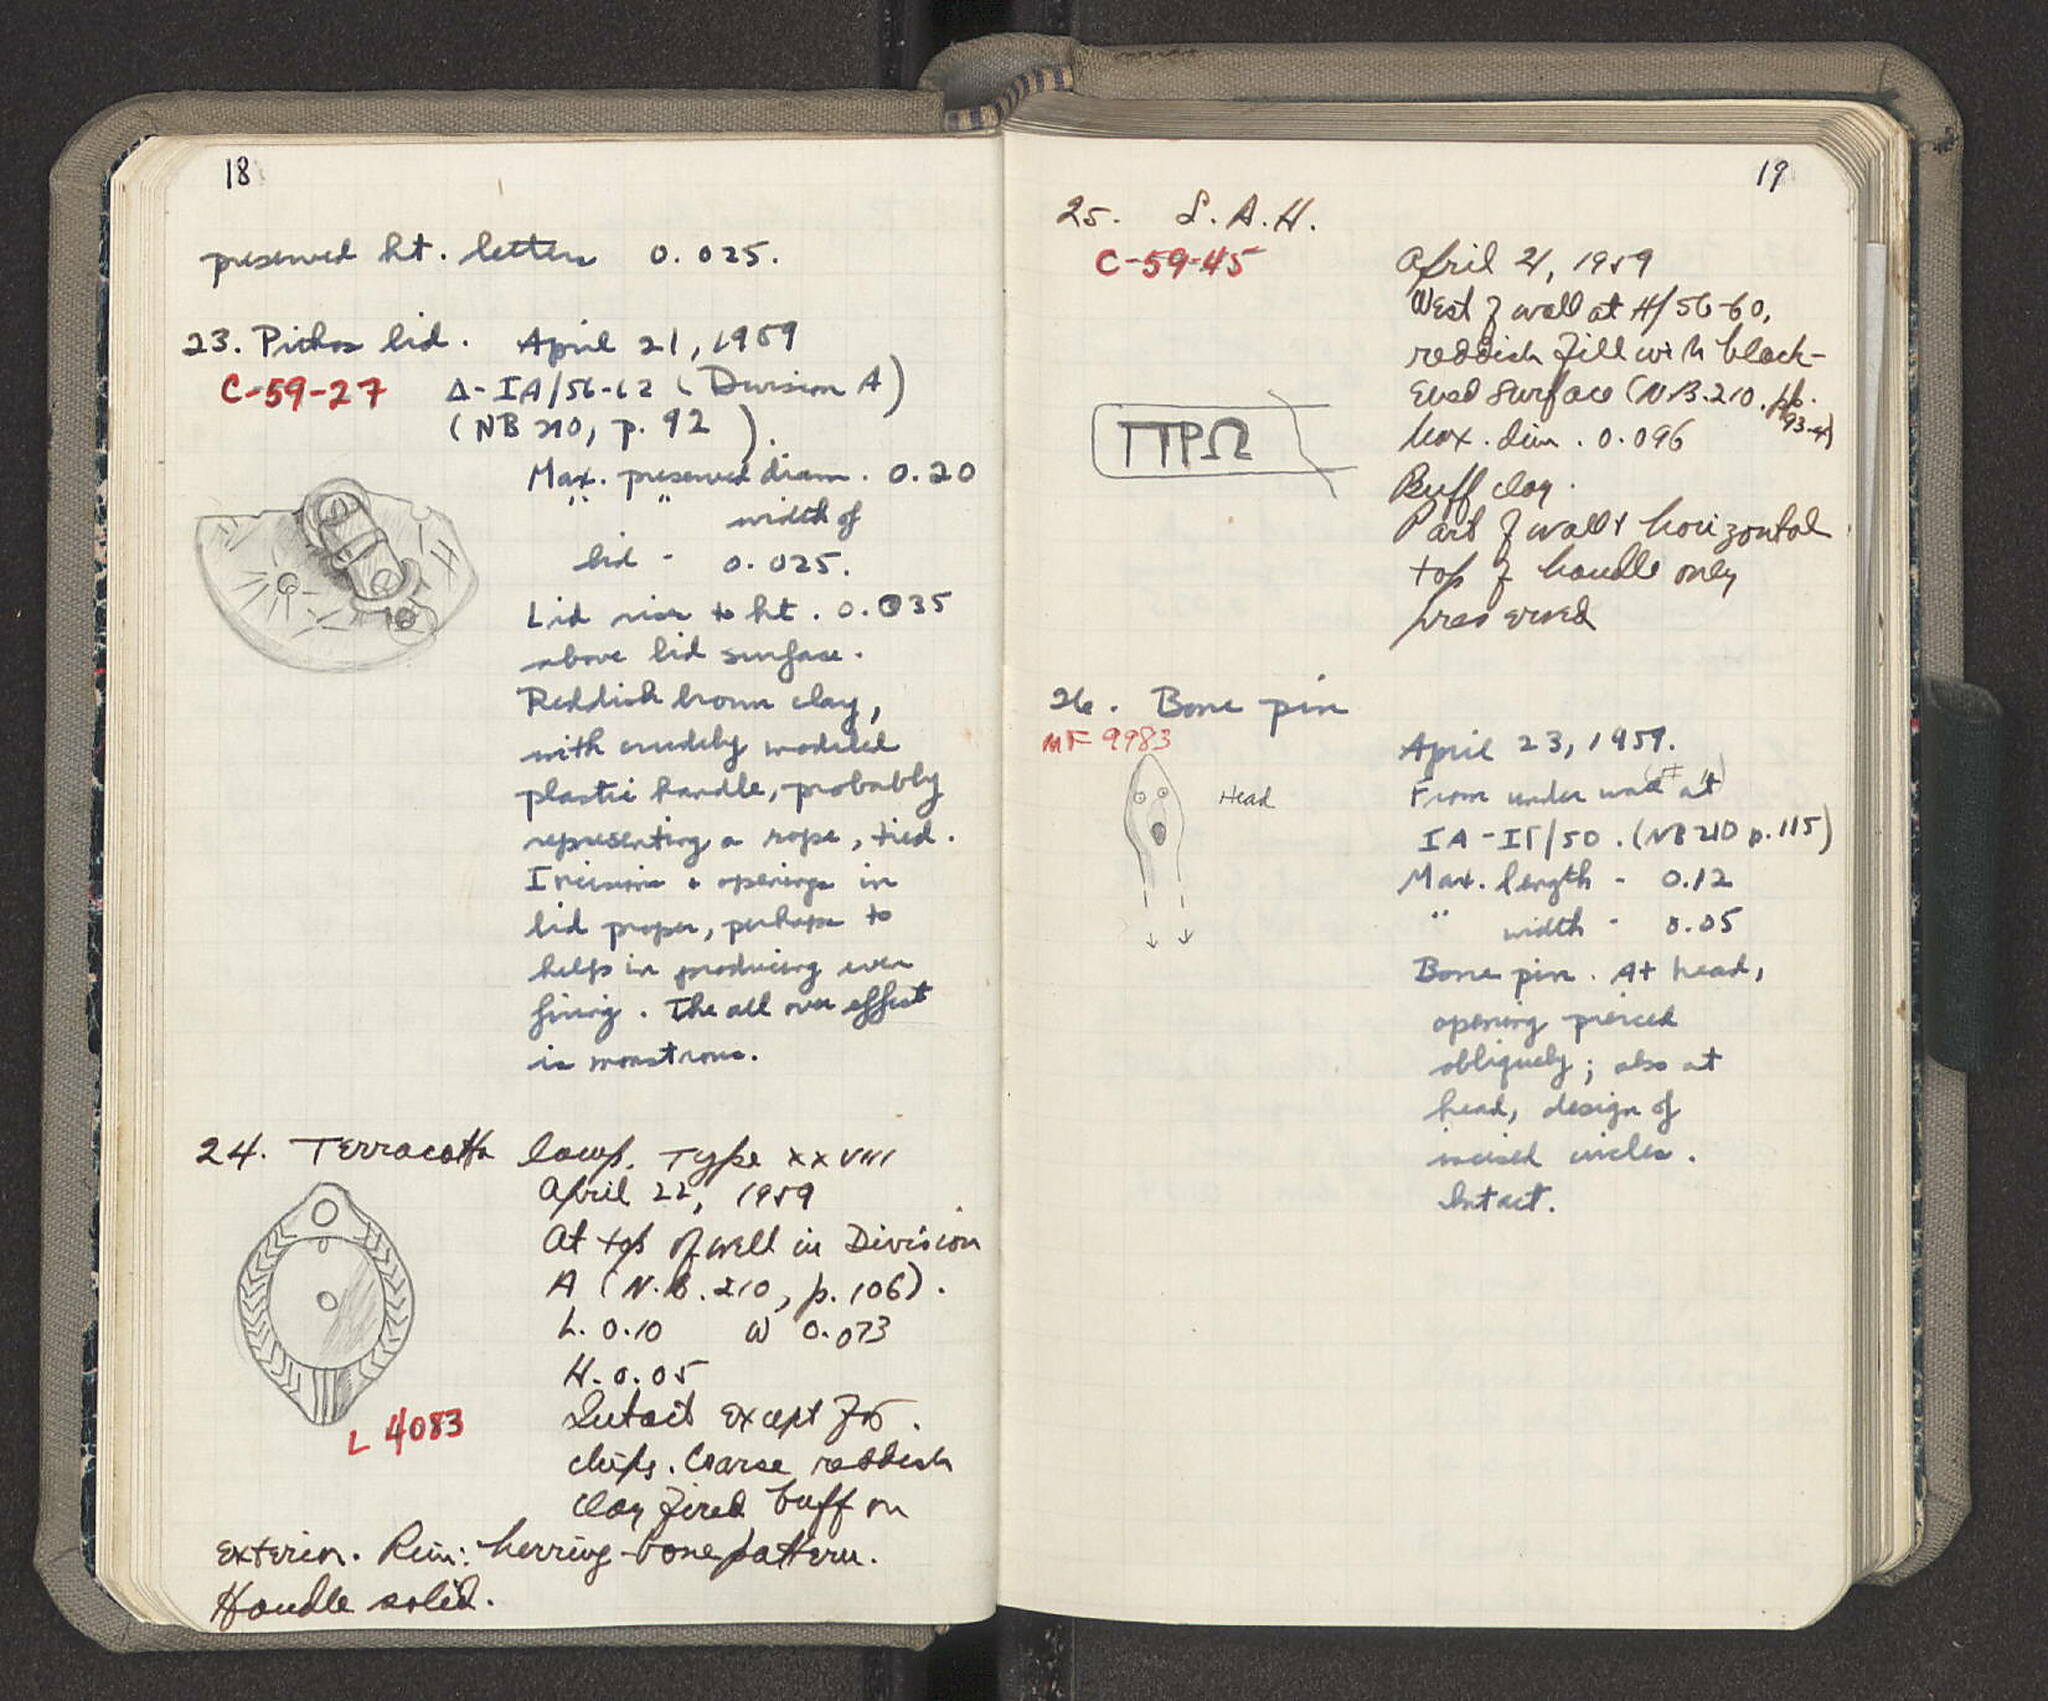 18
preserved ht. letters 0.025.
23. Pithos lid. April 21, 1959
C-59-27 Δ-IA/56-62 (Division A)
(NB 210, p. 92 ).
Max. preserved diam. 0.20
" " width of
lid - 0.025.
Lid rises to ht. 0.035
above lid surface.
Reddish brown clay,
with crudely modeled
plastic handle, probably
representing a rope, tied.
Incisions + openings in
lid proper, perhaps to
help in producing even
firing. The all over effect
is monstrous.
24. Terracotta lamp. Type XXVIII
April 22, 1959
At top of well in Division
A (N.B. 210, p. 106).
L. 0.10 W 0.073
H. 0.05
Intact except for
chips. Coarse reddish
clay fired buff on
L 4083
exterior. Rim: herring-bone pattern.
Handle solid.
19
25. S.A.H.
C-59-45 April 21, 1959
West of wall at H/56-60,
reddish fill with black-
ened surface (NB.210. pp.
93-4)
Max. dim. 0.096
ΠΡΩ
Buff clay.
Part of wall & horizontal
top of handle only
preserved
26. Bone pin
MF 9983 April 23, 1959.
Head
From under wall at
IA-IΓ/50. (NB 210 p. 115)
Max. length - 0.12
" width - 0.05
Bone pin. At head,
opening pierced
obliquely; also at
head, design of
incised circles.
Intact.